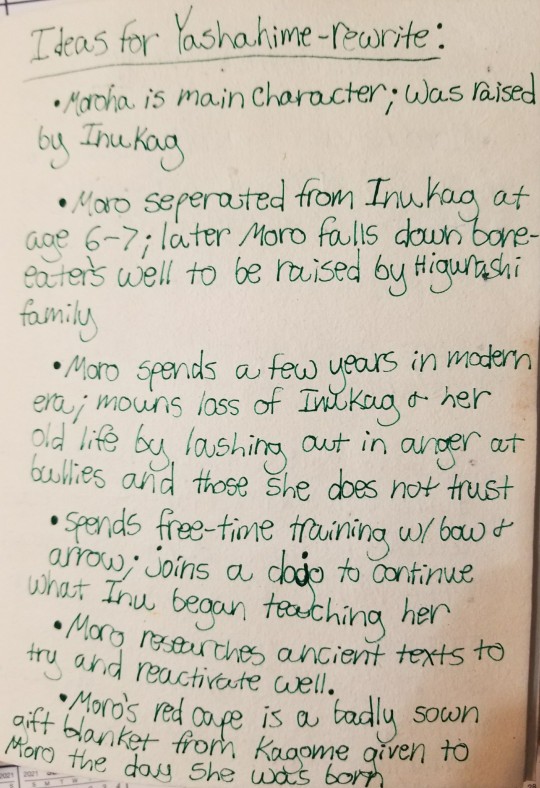 Ideas for Yashahime-rewrite:
• Moroha is main character; was raised
by InuKag
• Moro seperated from InuKag at
age 6-7; later Moro falls down bone-
eater's well to be raised by Higurashi
family
• Moro spends a few years in modern
era; mouns loss of InuKag & her
old life by lashing out in anger at
bullies and those she does not trust
• spends free-time training w/ bow &
arrow; joins a dojo to continue
what Inu began teaching her
• Moro researches ancient texts to
try and reactivate well.
• Moro's red cape is a badly sown
gift blanket from Kagome given to
Moro the day she was born
2021 2021